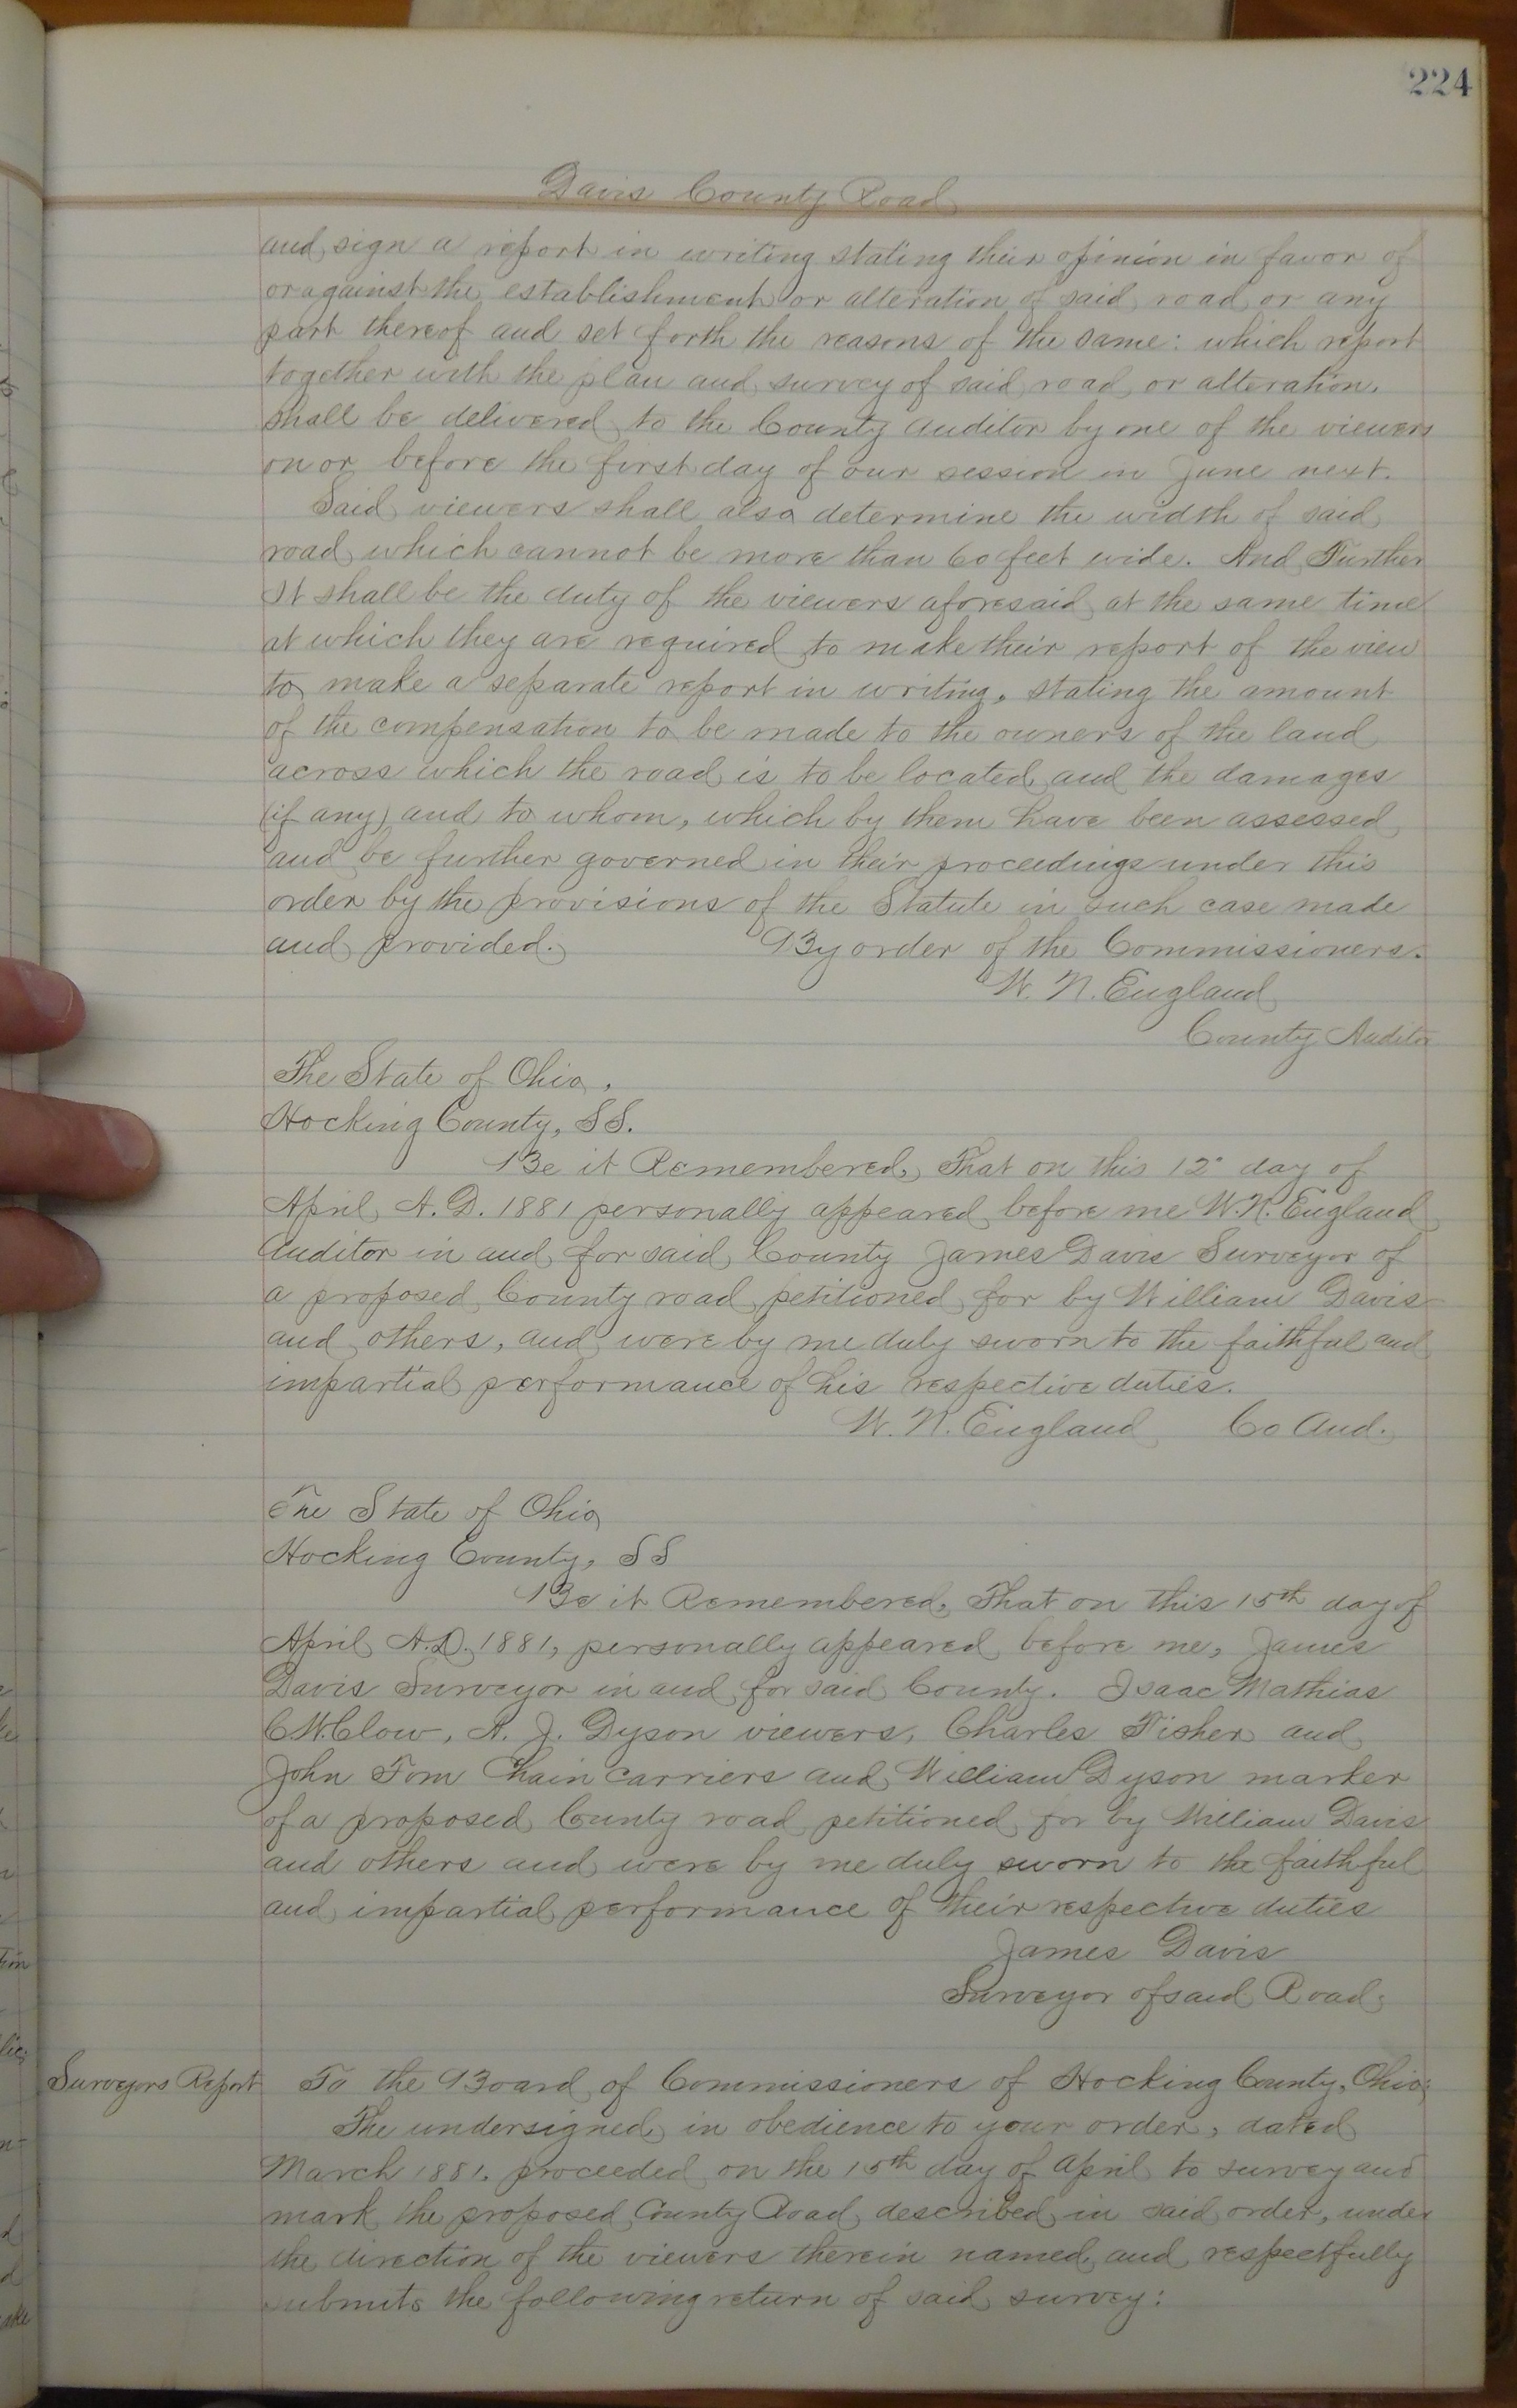 224
Davis County Road
and sign a report in writing stating their opinion in favor of
or against the establishment or alteration of said road or any
part thereof and set forth the reasons of the same: which report
together with the plan and survey of said road or alteration.
shall be delivered to the County Auditor by one of the viewers
on or before the first day of our session in June next.
Said viewers shall also determine the width of said
road which cannot be more than 60 feet wide. And Further
It shall be the duty of the viewers aforesaid at the same time
at which they are required to make their report of the view
to make a separate report in writing, stating the amount
of the compensation to be made to the owners of the land
across which the road is to be located and the damages
(if any) and to whom, which by them have been assessed
and be further governed in their proceedings under this
order by the provisions of the Statute in such case made
and provided. By order of the Commissioners.
W. N. England
County Auditor
The State of Ohio,
Hocking County, SS.
Be it Remembered, That on this 12" day of
April A.D. 1881 personally appeared before me W.N. England
Auditor in and for said County James Davis Surveyor of
a proposed County road petitioned for by William Davis
and others, and were by me duly sworn to the faithful and
impartial performance of his respective duties.
W. N. England Co Aud.
The State of Ohio
Hocking County, SS
Be it Remembered, That on this 15th day of
April A.D. 1881, personally appeared before me, James
Davis Surveyor in and for said County. Isaac Mathias
C.W. Clow, A. J. Dyson viewers, Charles Fisher and
John Tom Chain Carriers and William Dyson marker
of a proposed County road petitioned for by William Davis
and others and were by me duly sworn to the faithful
and impartial performance of their respective duties
James Davis
Surveyor of said Road.
Surveyors Report To the Board of Commissioners of Hocking County, Ohio;
The undersigned in obedience to your order, dated
March 1881. proceeded on the 15th day of April to survey and
mark the proposed County Road described in said order, under
the direction of the viewers therein named and respectfully
submits the following return of said survey: